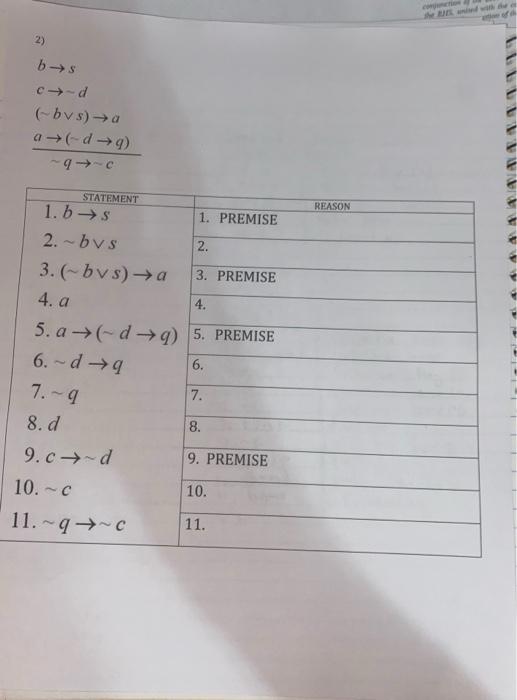 the RHS, united with the
2)
b → s
c → ~d
(~b ∨ s) → a
a → (~d → q)
~q → ~c
STATEMENT REASON
1. b → s 1. PREMISE
2. ~b ∨ s 2.
3. (~b ∨ s) → a 3. PREMISE
4. a 4.
5. a → (~d → q) 5. PREMISE
6. ~d → q 6.
7. ~q 7.
8. d 8.
9. c → ~d 9. PREMISE
10. ~c 10.
11. ~q → ~c 11.